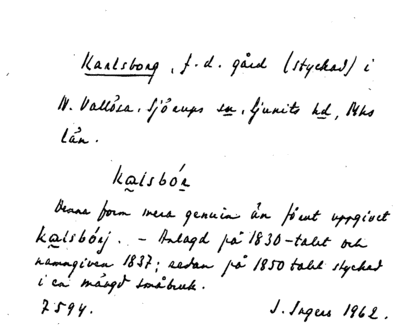 Karlsborg, f.d. gård (styckad) i
N. Vallösa, Sjörups sn, Ljunits hd, Mhs
län.
kalsbór
Denna form mera genuin än förut uppgivet
kalsbórj. – Anlagd på 1830-talet och
namngiven 1837; sedan på 1850 talet styckad
i en mängd småbruk.
7594. I. Ingers 1962.